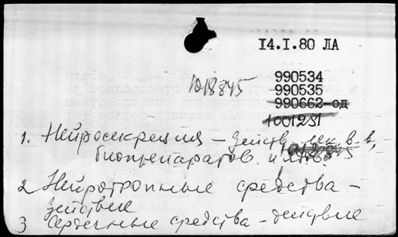 14.I.80 ЛА
1018845
990534
990535
990662-од
1001251
1. Нейросекреция – действ. лек. в-в,
биопрепаратов. и
2 Нейротропные средства –
действие
3 Сердечные средства - действие